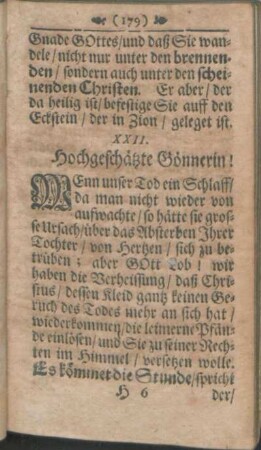 (179)
Gnade GOttes/und daß Sie wan-
dele/nicht nur unter den brennen-
den/sondern auch unter den schei-
nenden Christen. Er aber/der
da heilig ist/befestige Sie auff den
Eckstein/der in Zion/geleget ist.
XXII.
Hochgeschätzte Gönnerin!
WEnn unser Tod ein Schlaff/
da man nicht wieder von
aufwachte/so hätte sie gros-
se Ursach/über das Absterben Ihrer
Tochter/von Hertzen/sich zu be-
trüben; aber GOtt Lob! wir
haben die Verheissung/daß Chri-
stus/dessen Kleid gantz keinen Ge-
ruch des Todes mehr an sich hat/
wiederkommen/die leimerne Pfän-
de einlösen/und Sie zu seiner Rech-
ten im Himmel/versetzen wolle.
Es kömmet die Stunde/spricht
H 6 der/